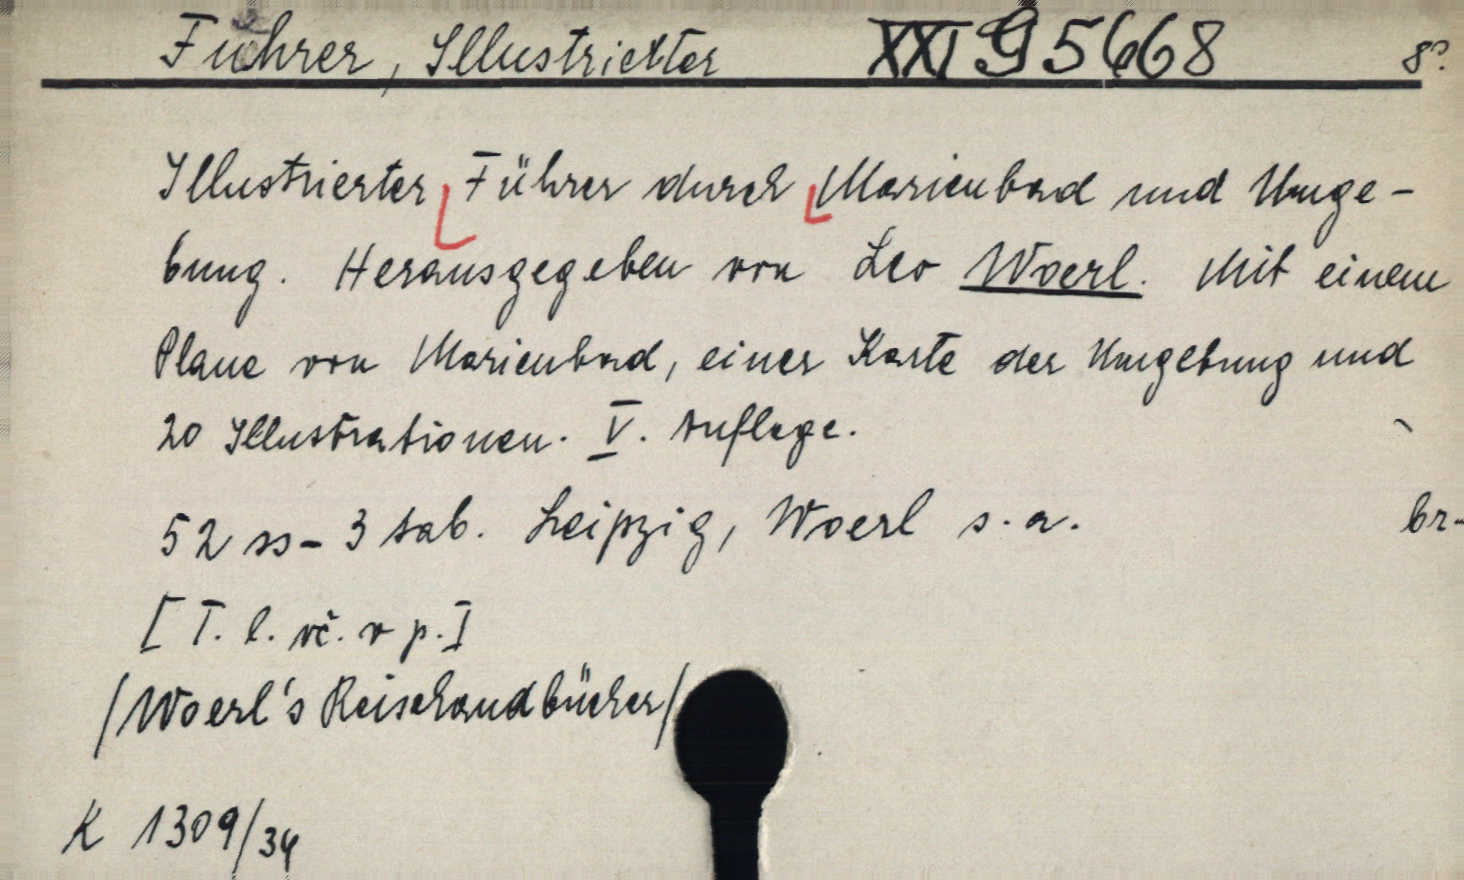 Führer, Illustrierter XXI G 5668 8°.
Illustrierter Führer durch Marienbad und Umge-
bung. Herausgegeben von Leo Woerl. Mit einem
Plane von Marienbad, einer Karte der Umgebung und
20 Illustrationen. V. Auflage.
52 ss - 3 tab. Leipzig, Woerl s. a. br-
[T. l. vč. v p.]
/Woerl's Reisehandbücher/
K 1309/34